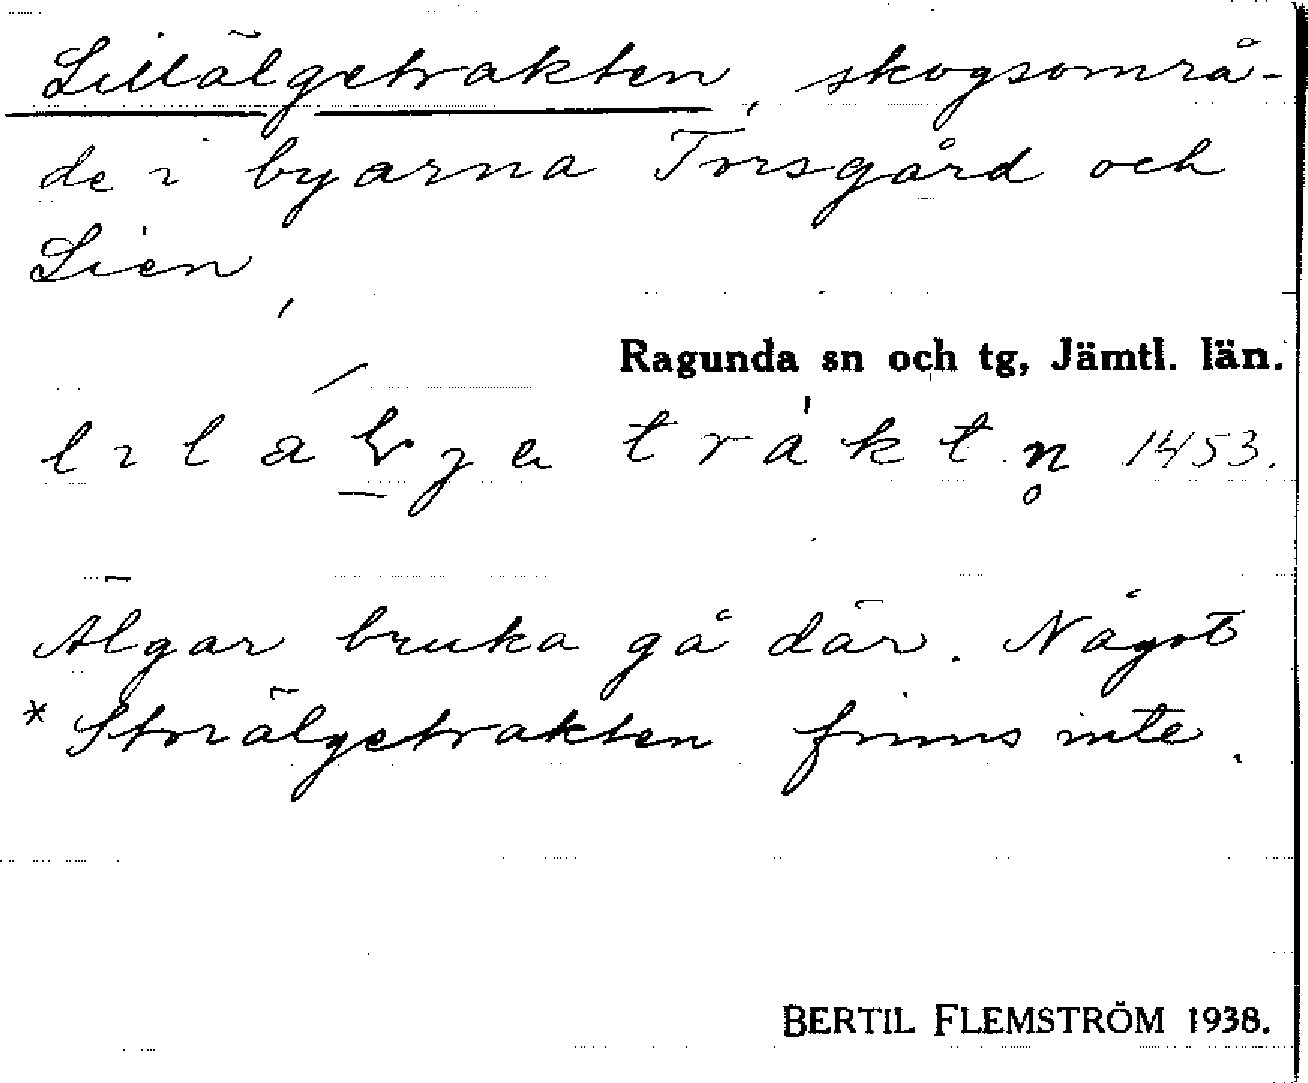 Lillälgetrakten, skogsområ-
de i byarna Torsgård och
Lien,
Ragunda sn och tg, Jämtl. län.
1453.
Älgar bruka gå där. Något
*Storälgetrakten finns inte.
BERTIL FLEMSTRÖM 1938.